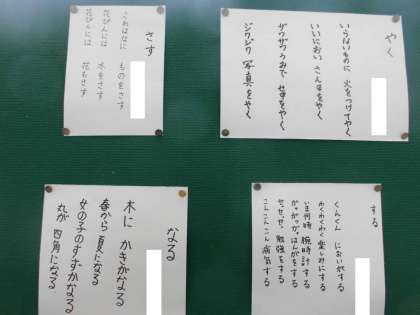 やく
いらないものに 火をつけてやく
いいにおい さんまをやく
ザワザワうおで せをやく
ジリジリ 写真をやく
さす
ものをさす
花びんには 水をさす
花びんには 花もさす
する
くんくん においがする
わくわくわく 楽しみにする
いま何時 腕時計する
がっがっがっ はんがをする
せっせっせっ 勉強をする
こんこんこん 病気する
なる
木に かきがなる
春から 夏になる
女の子のすずがなる
丸が 四角になる